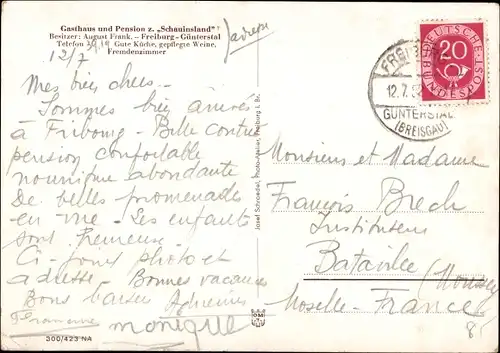 Gasthaus und Pension z. „Schauinsland"
Besitzer: August Frank. – Freiburg-Günterstal
Telefon 2919 Gute Küche, gepflegte Weine,
Fremdenzimmer
adresse
12/7
Mes bien chers –
Sommes bien arrivés
à Fribourg – Belle contrée
pension confortable
nourriture abondante
De belles promenades
en vue – Les enfants
sont heureux –
Ci-joint photo et
adresse. Bonnes vacances
Bons baisers
monique
300/423 NA
Josef Schroedel, Freiburg i. Br.
DEUTSCHE BUNDESPOST
20
12.7.5
GÜNTERSTAL
(BREISGAU)
Monsieur et Madame
François Brech
Instituteurs
Bataville (Moussey)
Moselle – France
85